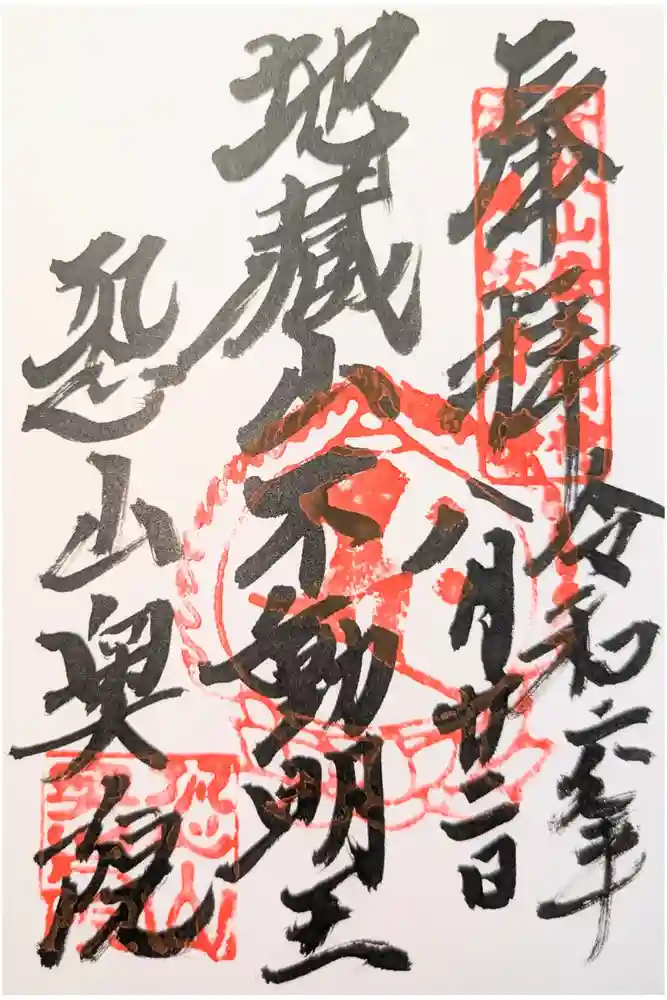 奉拝
令和六年
八月廿二日
地蔵山不動明王
恐山奥院